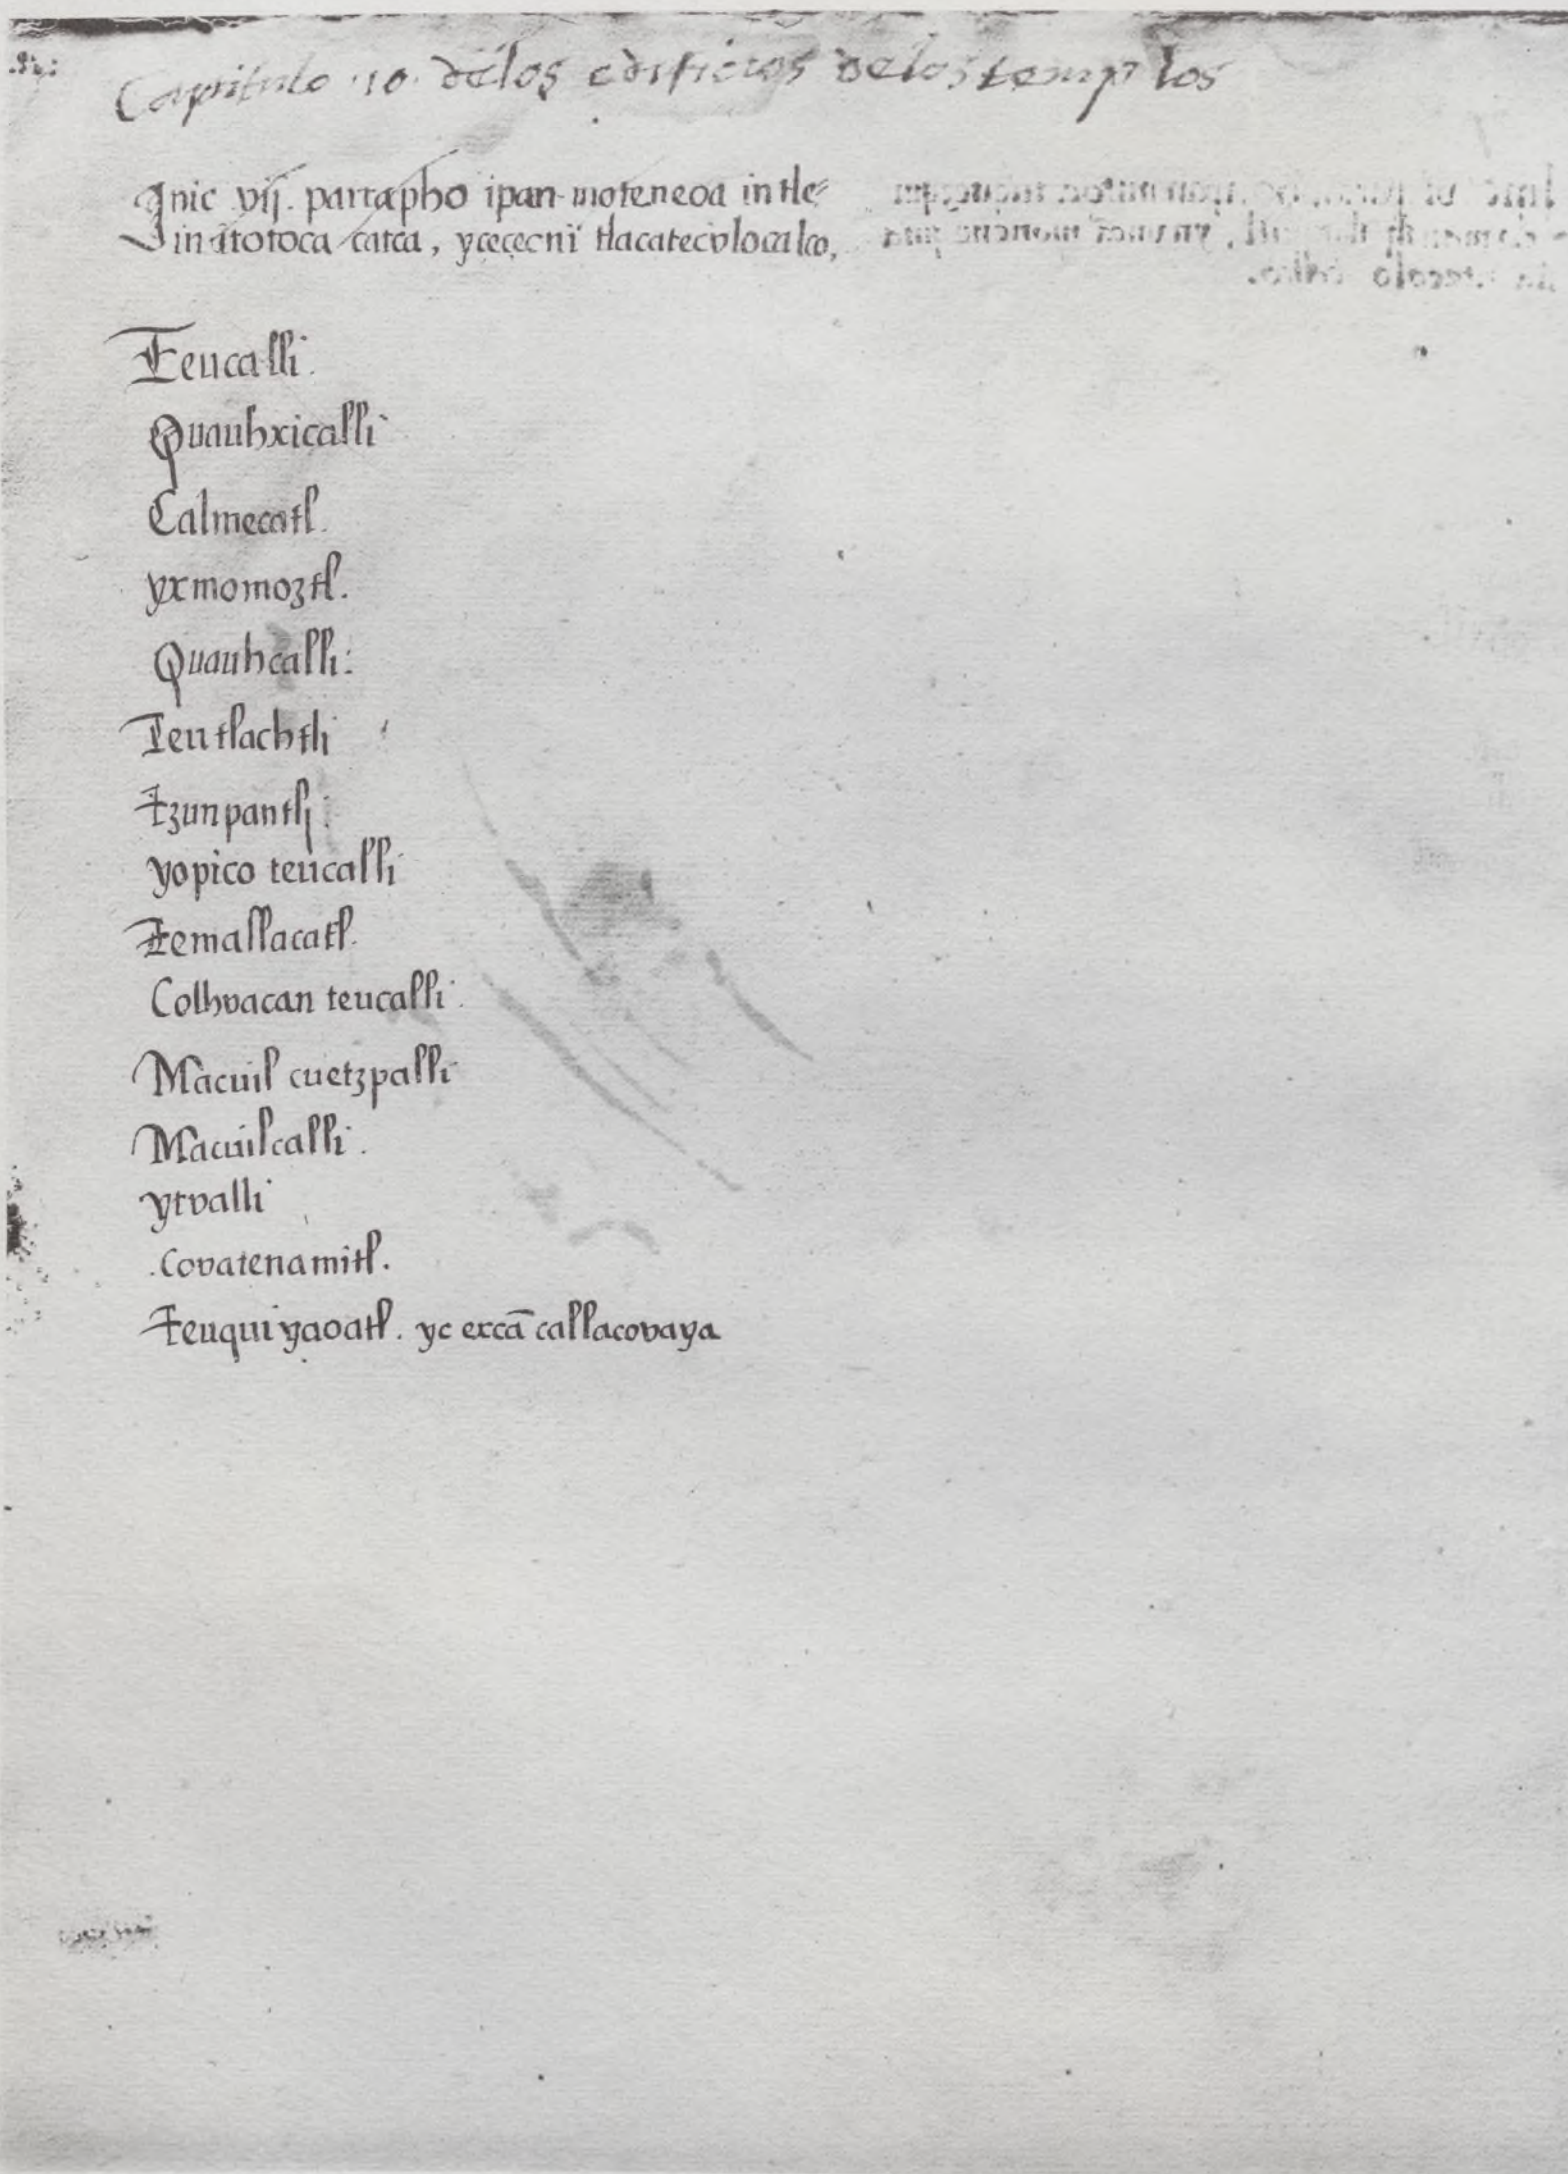 Capitulo .10. delos edificios delos templos
Inic vij. parrapho ipan moteneoa in tle⸗
in itotoca catca, ycececni tlacatecolocalco,
Teucalli.
Quauhxicalli
Calmecatl.
yxmomoztl.
Quauhcalli:
Teutlachtli
tzunpantli:
yopico teucalli
Temallacatl.
Colhvacan teucalli.
Macuil cuetzpalli
Macuilcalli.
ytvalli
.covatenamitl.
Teuquiyaoatl. yc excā callacovaya